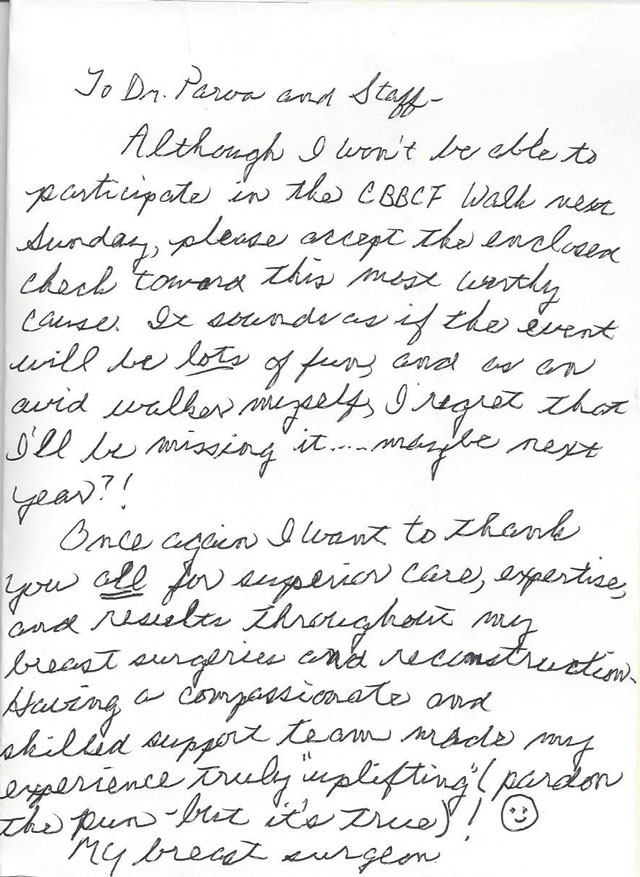 To Dr. Parva and Staff-
Although I won't be able to
participate in the CBBCF Walk next
Sunday, please accept the enclosed
check toward this most worthy
cause. It sounds as if the event
will be lots of fun, and as an
avid walker myself, I regret that
I'll be missing it.... maybe next
year?!
Once again I want to thank
you all for superior care, expertise,
and results throughout my
breast surgeries and reconstruction.
Having a compassionate and
skilled support team made my
experience truly "uplifting" (pardon
the pun - but it's true)!
My breast surgeon